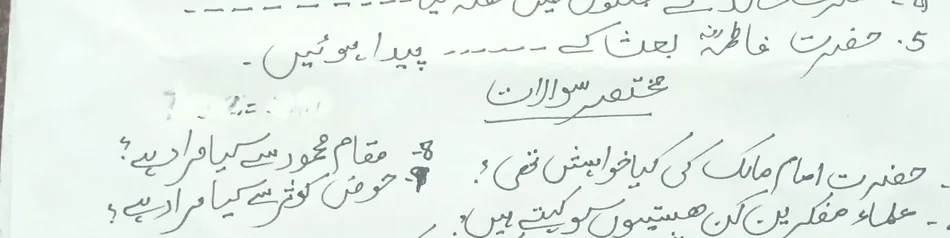 5. حضرت فاطمہؓ بعثت کے ------ پیدا ہوئیں۔
مختصر سوالات
حضرت امام مالک کی کیا خواہش تھی؟
علماء مفکرین کن ہستیوں کو کہتے ہیں؟
8- مقام محمود سے کیا مراد ہے؟
9- حوض کوثر سے کیا مراد ہے؟